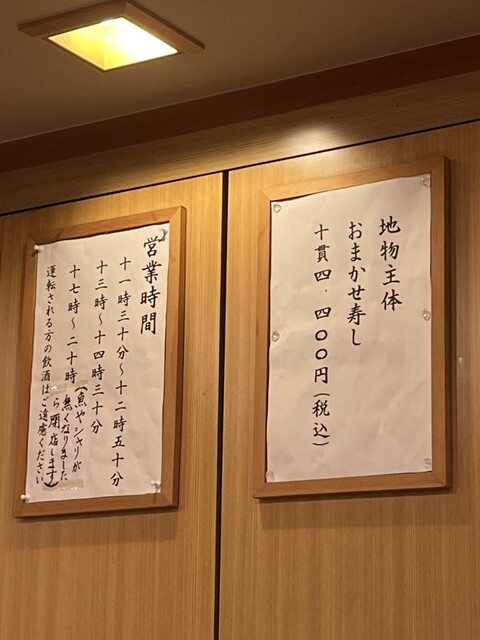 地物主体
おまかせ寿し
十貫四、四〇〇円(税込)
営業時間
十一時三十分～十二時五十分
十三時～十四時三十分
十七時～二十時
(魚やシャリが
無くなりました
ら閉店します)
運転される方の飲酒はご遠慮ください